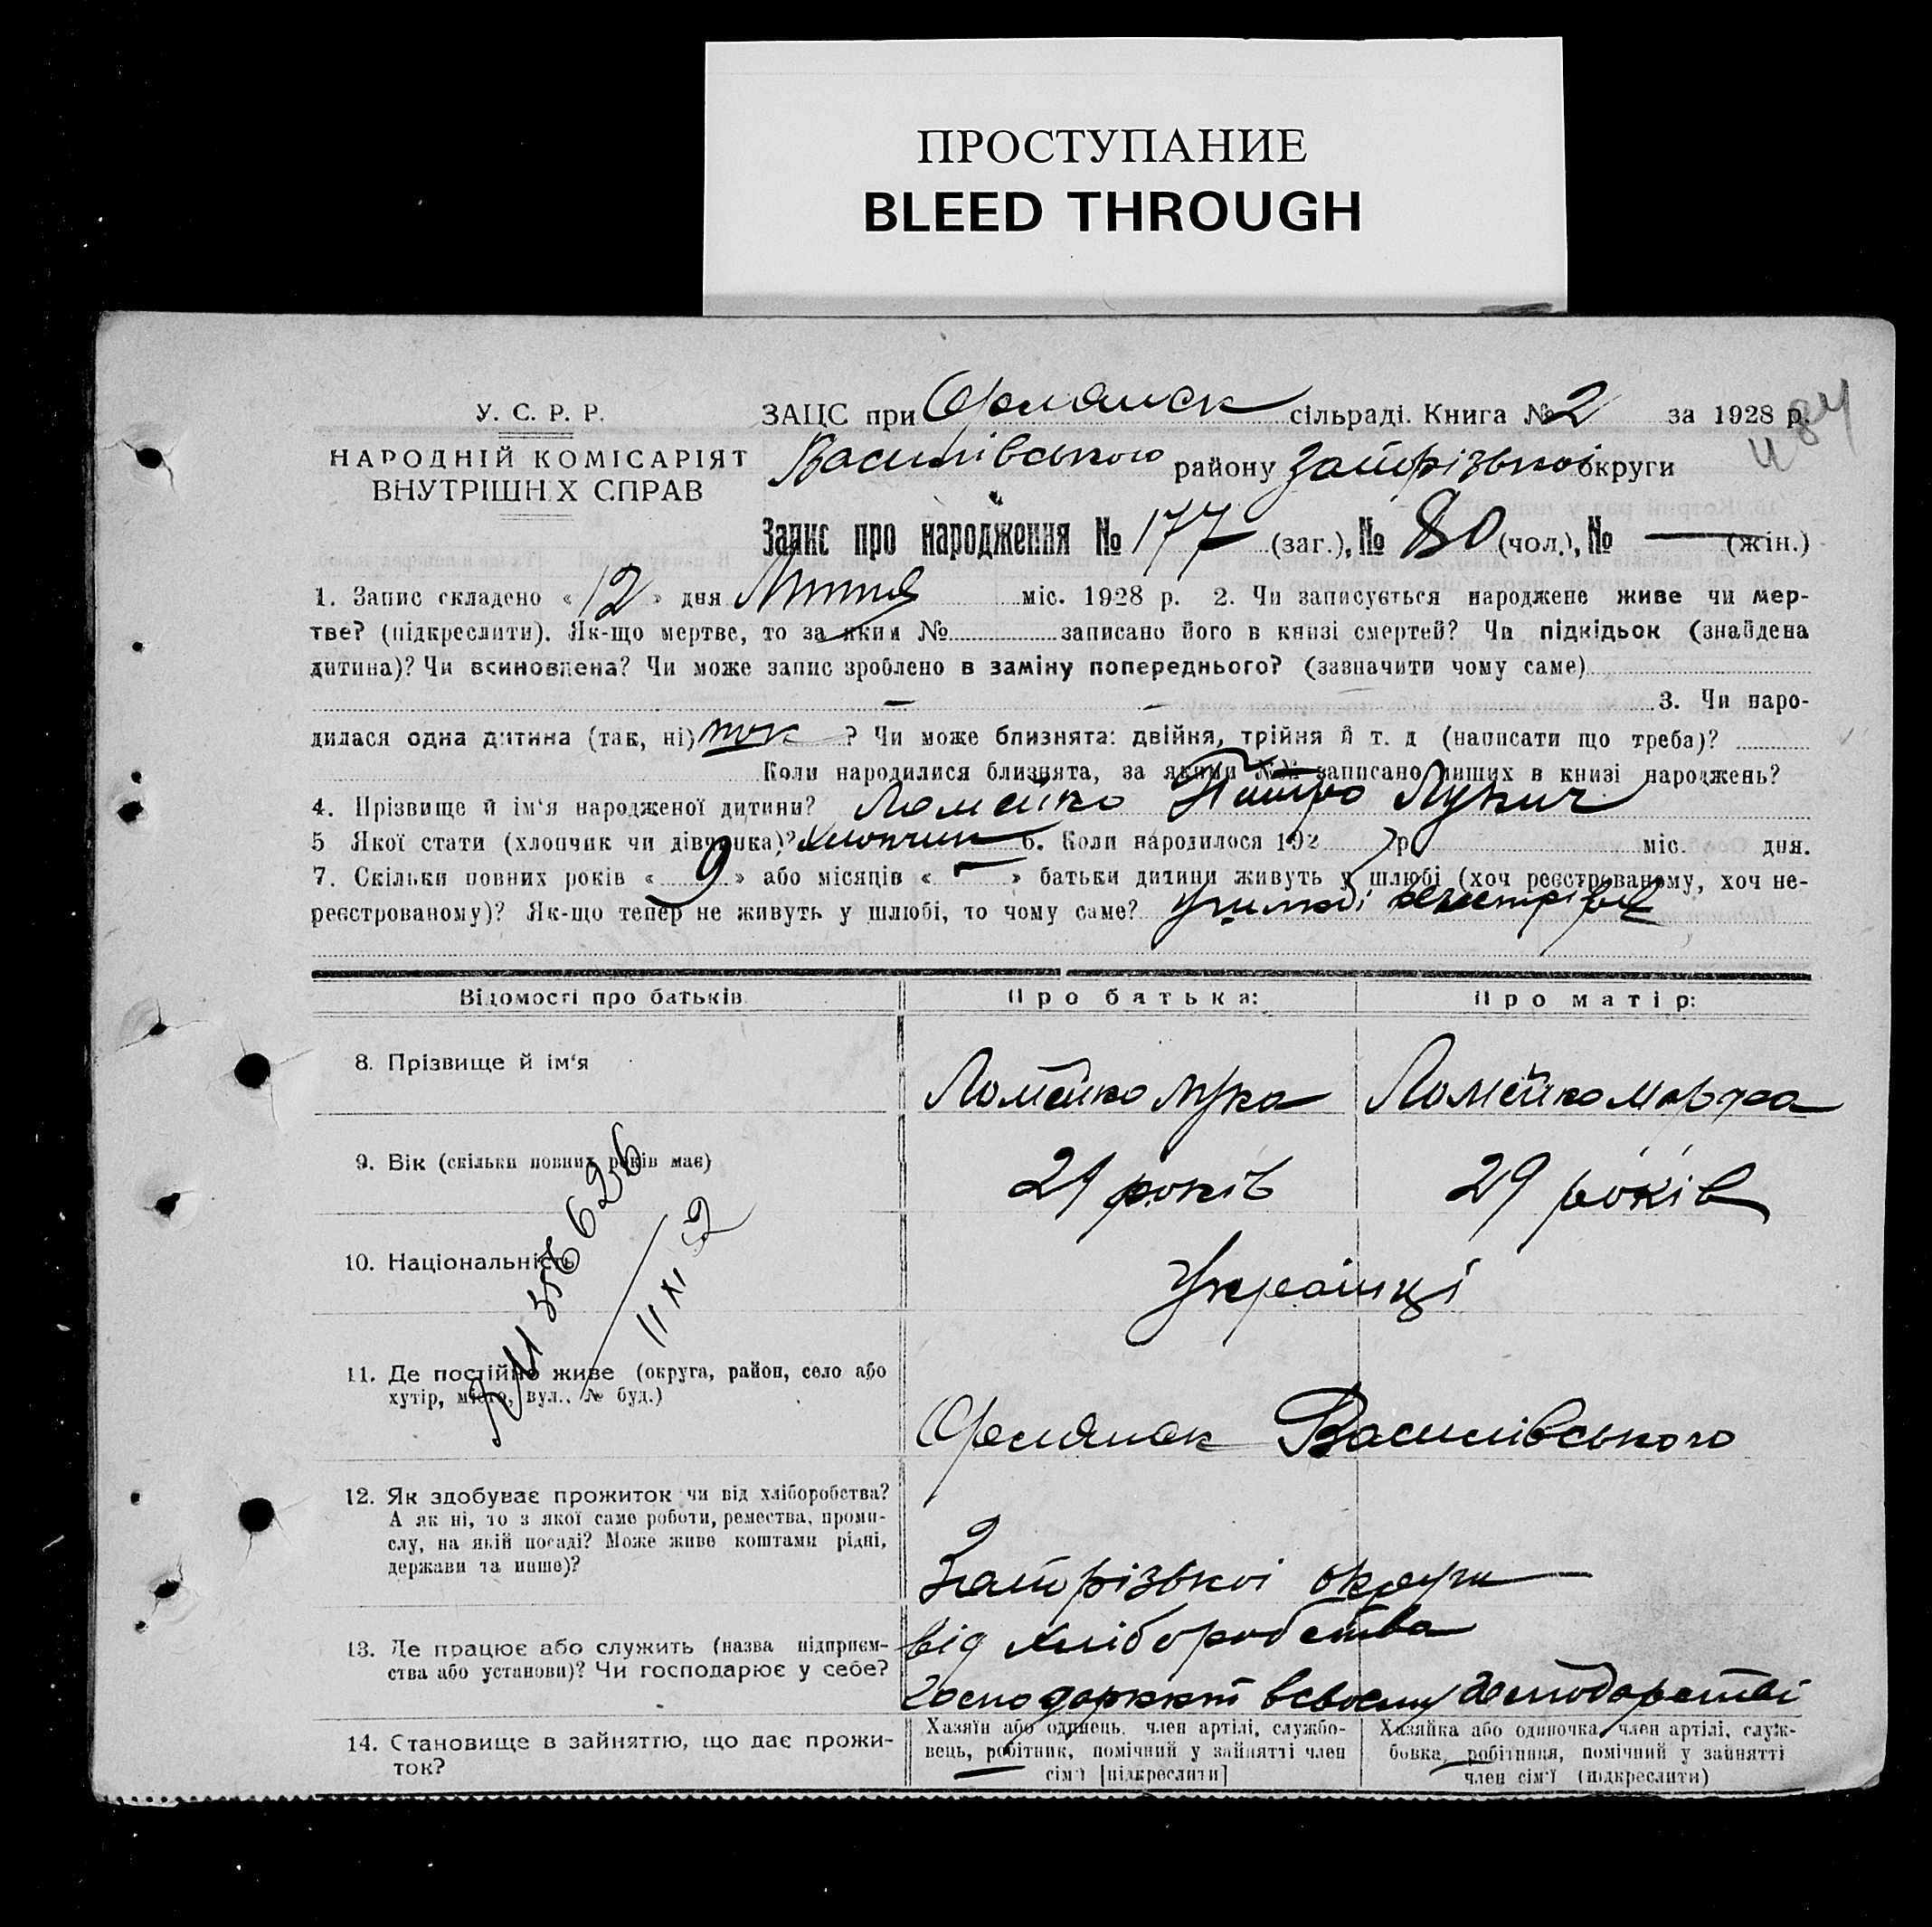 ПРОСТУПАНИЕ
BLEED THROUGH
У. С. Р. Р.
НАРОДНІЙ КОМІСАРІЯТ
ВНУТРІШН Х СПРАВ
ЗАЦС при Орлянск сільраді. Книга № 2 за 1928 р.
484
Василівського району Запорізької округи
Запис про народження № 177 (заг.), № 80 (чол.), № — (жін.)
1. Запис складено « 12 » дня Липня міс. 1928 р. 2. Чи записується народжене живе чи мер-
тве? (підкреслити). Як-що мертве, то за яким № записано його в книзі смертей? Чи підкідьок (знайдена
дитина)? Чи всиновлена? Чи може запис зроблено в заміну попереднього? (зазначити чому саме)
— — 3. Чи наро-
дилася одна дитина (так, ні) так ? Чи може близнята: двійня, трійня й т. д (написати що треба)?
Коли народилися близнята, за якими №№ записано инших в книзі народжень?
4. Прізвище й ім'я народженої дитини? Ломейко Петро Лукич
5 Якої стати (хлопчик чи дівчинка)? Хлопчик 6. Коли народилося 192 р міс. дня.
7. Скільки повних років « 9 » або місяців « — » батьки дитини живуть у шлюбі (хоч реєстрованому, хоч не-
реєстрованому)? Як-що тепер не живуть у шлюбі, то чому саме?
Відомості про батьків
Про батька:
Про матір:
8. Прізвище й ім'я
Ломейко Лука
Ломейко Марфа
9. Вік (скільки повних років має)
29 років
29 років
10. Національність
Українці
11 XI 52
11. Де постійно живе (округа, район, село або
хутір, місто, вул., № буд.)
Орлянск Василівського
12. Як здобуває прожиток чи від хліборобства?
А як ні, то з якої саме роботи, ремества, проми-
слу, на якій посаді? Може живе коштами рідні,
держави та инше)?
Запорізької округи
від хліборобства
13. Де працює або служить (назва підприєм-
ства або установи)? Чи господарює у себе?
господарюють в своєму господарстві
14. Становище в зайняттю, що дає прожи-
ток?
Хазяїн або одинець, член артілі, службо-
вець, робітник, помічний у зайнятті член
сім'ї [підкреслити]
Хазяйка або одиночка, член артілі, служ-
бовка, робітниця, помічний у зайнятті
член сім'ї (підкреслити)